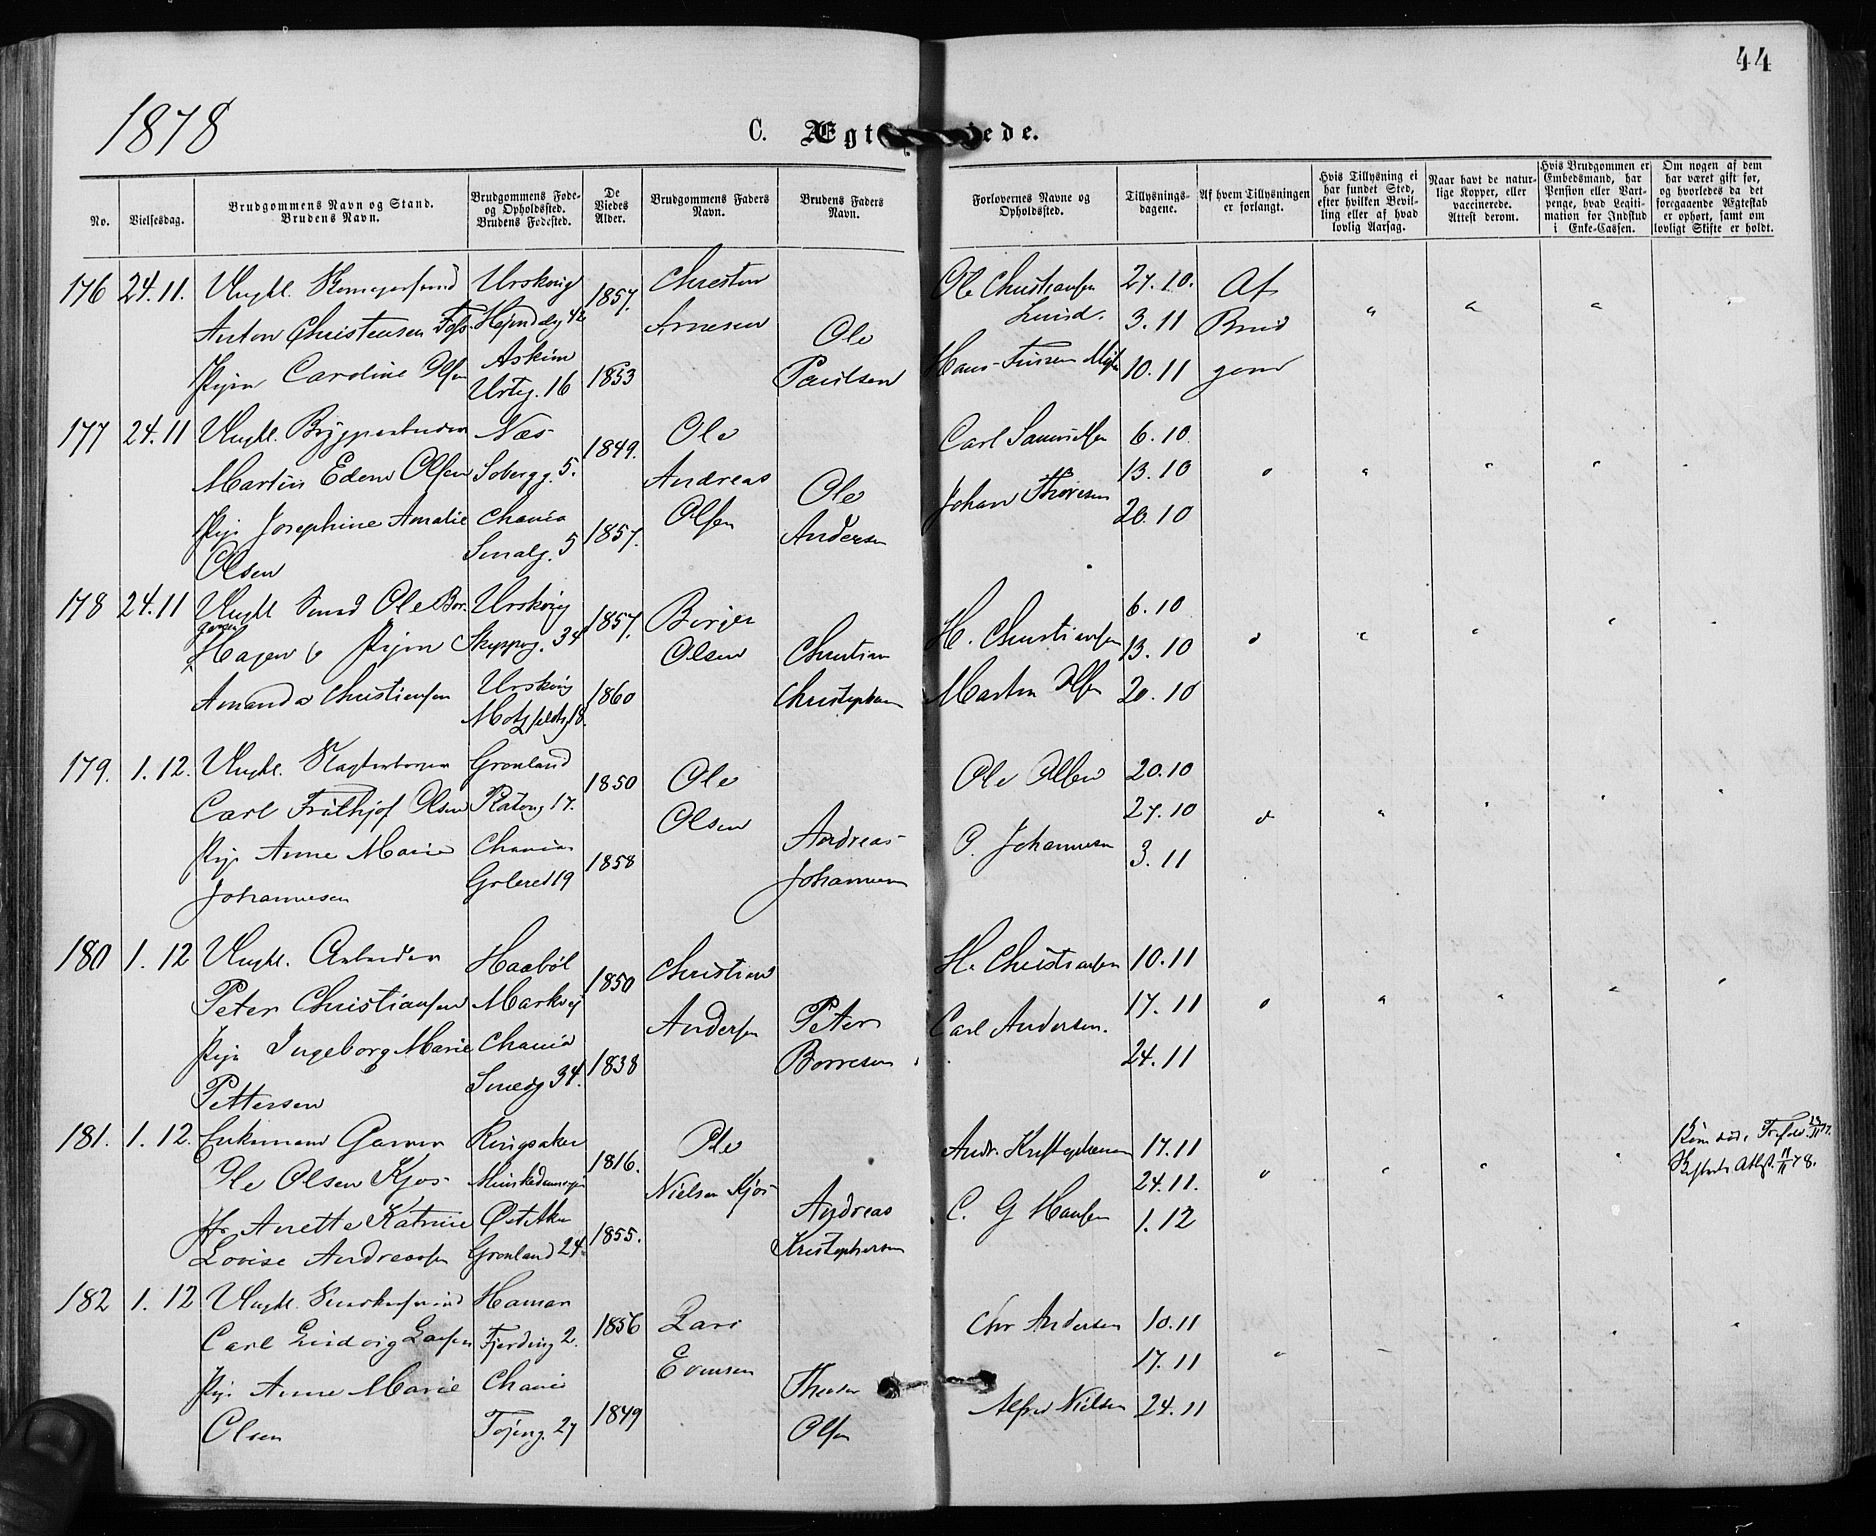 44
1878
C. Ægt iede.
No.
Vielsesdag.
Brudgommens Navn og Stand.
Brudens Navn.
Brudgommens Føde-
og Opholdssted.
Brudens Fødested.
De
Viedes
Alder.
Brudgommens Faders
Navn.
Brudens Faders
Navn.
Forlovernes Navne og
Opholdssted.
Tillysnings-
dagene.
Af hvem Tillysningen
er forlangt.
Hvis Tillysning ei
har fundet Sted,
efter hvilken Bevil-
ling eller af hvad
lovlig Aarsag.
Naar havt de natur-
lige Kopper, eller
vaccinerede.
Attest derom.
Hvis Brudgommen er
Embedsmand, har
Pension eller Vart-
penge, hvad Legiti-
mation for Indskud
i Enke-Cassen.
Om nogen af dem
har været gift før,
og hvorledes da det
foregaaende Ægteskab
er ophørt, samt om
lovligt Skifte er holdt.
176 24.11. Ungkl. Urskoug 1857. Christen Ole Christiansen 27.10. Af
Anton Christensen Foss Arnesen Ole Lund. 3.11 Brud
Pigen Caroline Olsen Askim 1853 Paulsen Hans 10.11 gom
Urteg. 16
177 24.11 Ungkl. Næs 1849. Ole Carl Samuelsen 6.10
Martin Edem Olsen Sobergg. 5. Andreas Ole Johan Thoresen 13.10
Pige Josephine Amalie Chania 1857. Olsen Andersen 20.10
Olsen Smalg. 5
178 24.11 Ungkl. Smed Ole Bør- Urskoug 1857. Børger 6.10
gersen Hagen & Pigen Skippeg. 34 Olsen Christian H. Christiansen 13.10
Amanda Christiansen Urskoug 1860 Christophersen Martin Olsen 20.10
Motzfeldtsg. 18.
179. 1.12. Ungkl. Grønland 1850 Ole Ole Olsen 20.10
Carl Frithjof Olsen Platoug 17. Olsen 27.10
Pige Anne Marie Chania 1858 Andreas O. Johannesen 3.11
Johannesen 19 Johannesen
180 1.12 Ungkl. Arbeider Haabøl 1850 Christian H. Christiansen 10.11
Peter Christiansen Markvej Andersen Peter Carl Andersen. 17.11
Pige Ingeborg Marie Chania 1838 Borresen 24.11
Pettersen Smedg 34.
181. 1.12. Enkemand Garver Ringsaker 1816. Ole Andr. Kristophersen 17.11
Ole Olsen Kjos Nielsen Kjos 24.11.
Anette Katrine 1855. Andreas C. G Hansen 1.12
Lovise Andreassen Grønland 24. Kristophersen
182 1.12 Ungkl. Hamar 1856 Lars Chr Andersen 10.11
Carl Ludvig Larsen Fjerding 2. Evensen 17.11
Pige Anne Marie Chania 1849 Alfred Nielsen 24.11
Olsen Tøieng. 27 Olsen